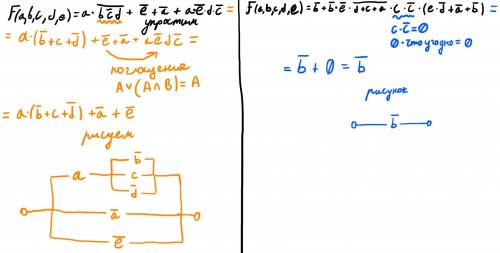 F(a,b,c,d,e) = a · \overline{b \bar{c} d} + \bar{e} + \bar{a} + a \bar{e} d \bar{c} =
упростим
= a·(\bar{b}+c+\bar{d}) + \bar{e} + \bar{a} + a \bar{e} d \bar{c} =
поглощения
A∨(A∧B) = A
= a·(\bar{b}+c+\bar{d}) + \bar{a} + \bar{e}
рисуем
\bar{b}
a c
\bar{d}
\bar{a}
\bar{e}
F(a,b,c,d,e) = \bar{b} + \bar{b} · \bar{e} · \overline{d+c+a} · c · \bar{c} · (e·\bar{d}+\bar{a}+b) =
c·\bar{c} = 0
0·что угодно = 0
= \bar{b} + 0 = \bar{b}
рисунок
\bar{b}